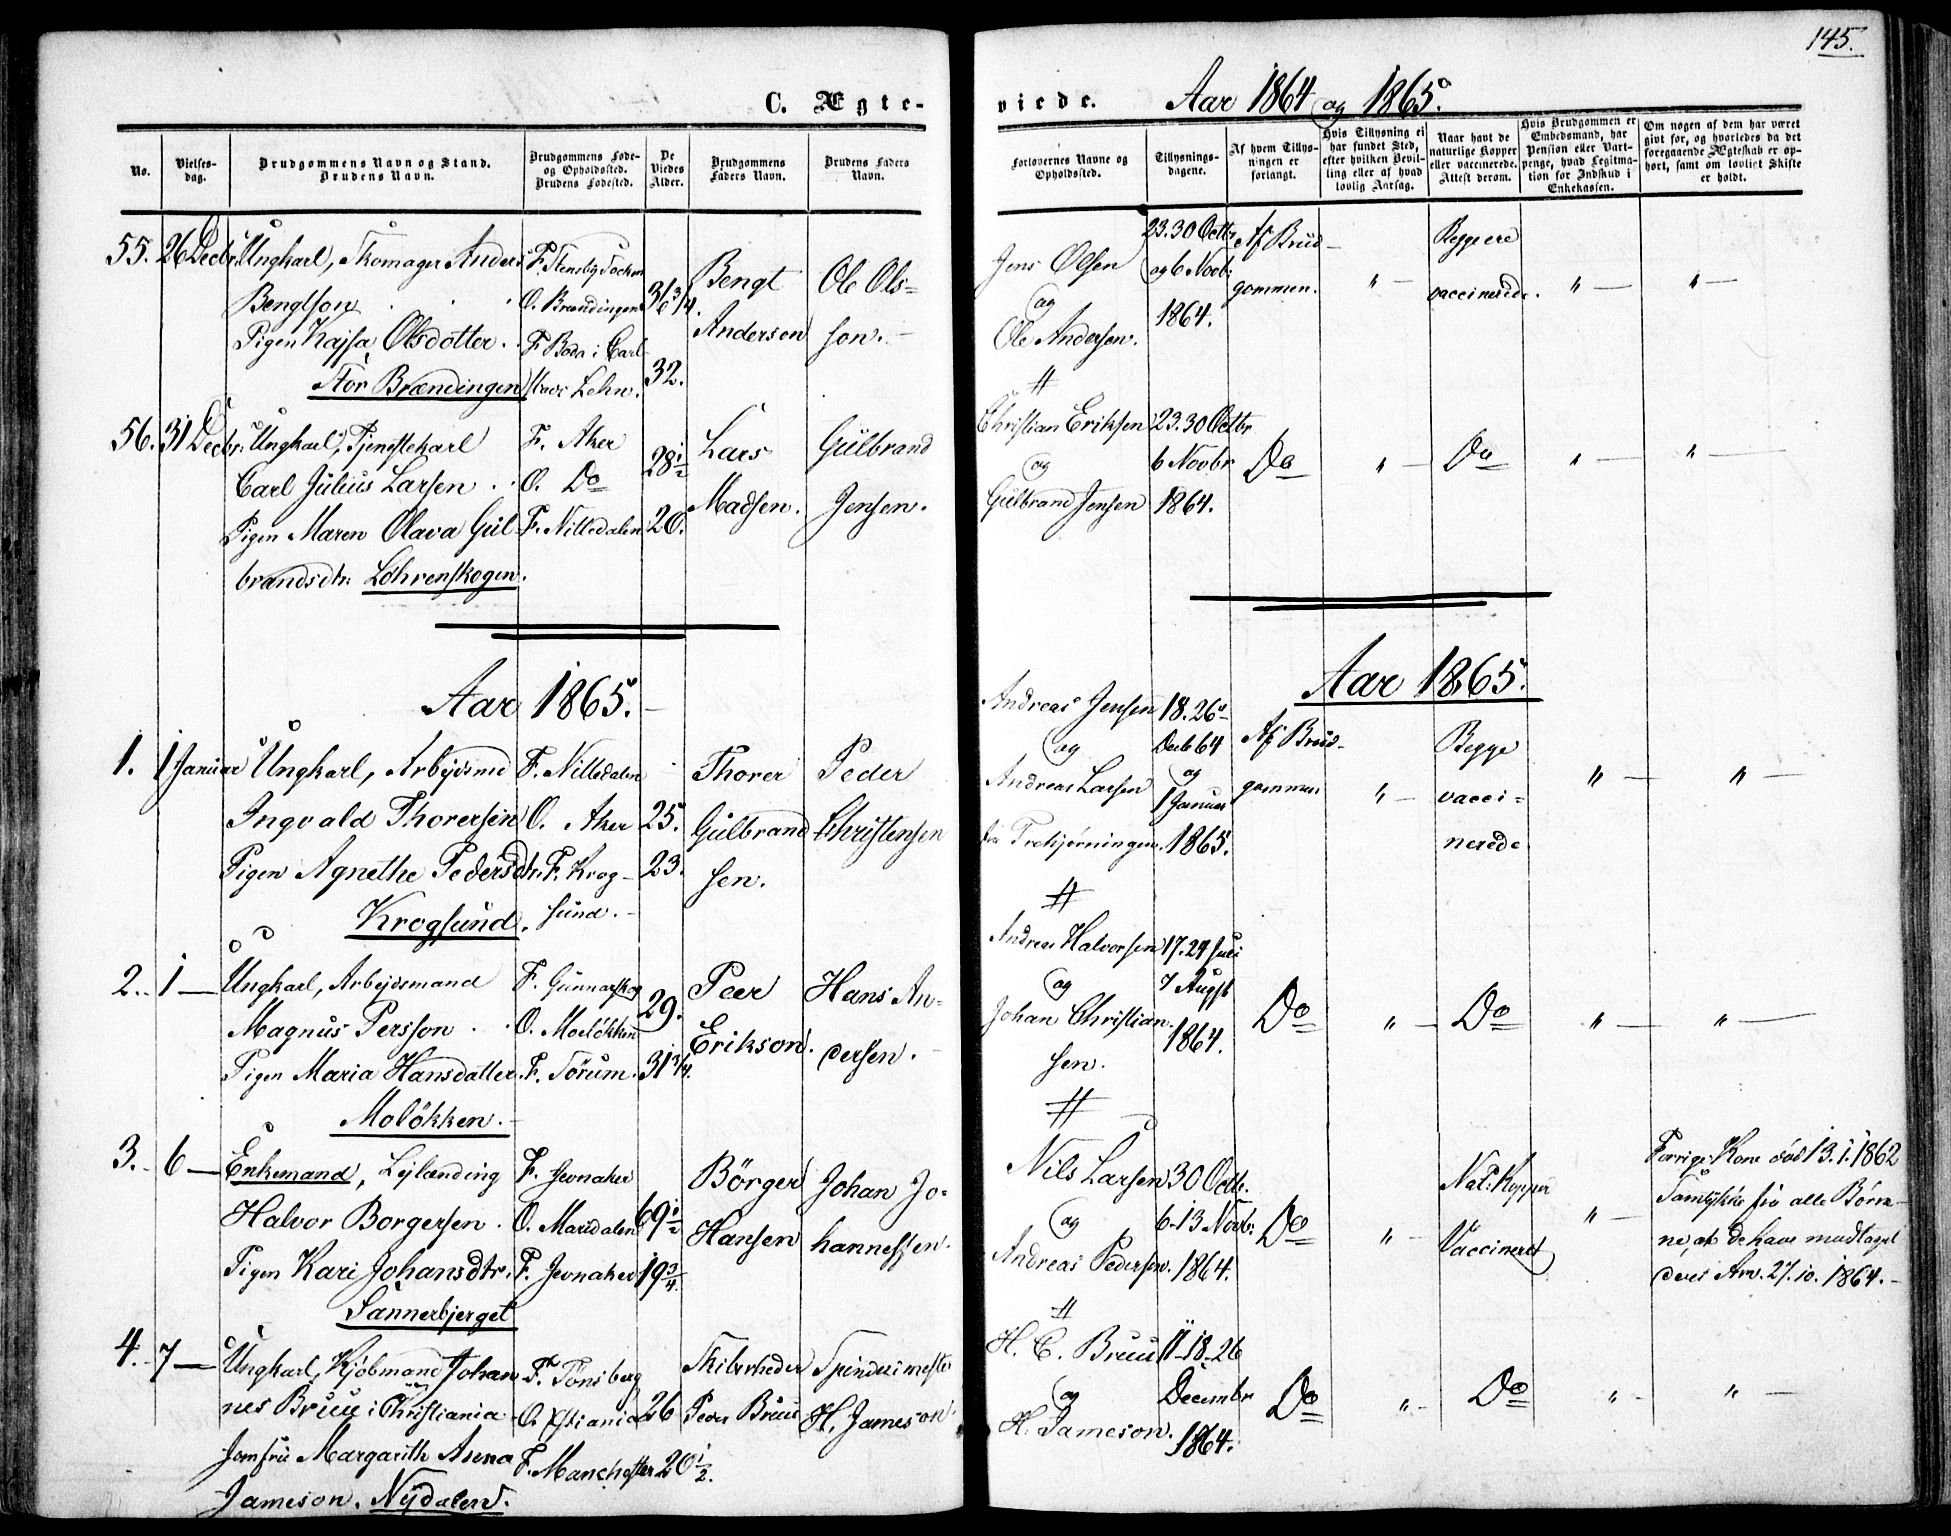 145.
C. Ægte-
viede. Aar 1864 og 1865.
No.
Vielses-
dag.
Brudgommens Navn og Stand.
Brudens Navn.
Brudgommens Føde-
og Opholdssted.
Brudens Fødested.
De
Viedes
Alder.
Brudgommens
Faders Navn.
Brudens Faders
Navn.
Forlovernes Navne og
Opholdssted.
Tillysnings-
dagene.
Af hvem Tillys-
ningen er
forlangt.
Hvis Tillysning ei
har fundet Sted,
efter hvilken Bevil-
ling eller af hvad
lovlig Aarsag.
Naar havt de
naturlige Kopper
eller vaccinerede.
Attest derom.
Hvis Brudgommen er
Embedsmand, har
Pension eller Vart-
penge, hvad Legitma-
tion for Indskud i
Enkekassen.
Om nogen af dem har været
givt før, og hvorledes da det
foregaaende Ægteskab er op-
hørt, samt om lovligt Skifte
er holdt.
55. 26 Decbr. Ungkarl, Skomager Anders
Bengtson
Pigen Kajsa Olsdotter.
Stor Brændingen
F. Stensby Socken
O. Brændingen
F. Boda i Carl-
stads Lehn.
36 3/4.
32.
Bengt
Anderson
Ole Ols=
son.
Jens Olsen
og
Ole Andersen.
23. 30 Octbr
og 6 Novb:
1864.
Af Brud-
gommen.
" —
Begge ere
vaccinerede.
" —
" —
56. 31 Decbr. Ungkarl, Tjenestekarl
Carl Julius Larsen
Pigen Maren Olava Gul-
brandsdtr. Løhrenskogen.
F. Aker
O. Do
F. Nittedalen
28 1/2
20.
Lars
Madsen.
Gulbrand
Jensen.
Christian Eriksen
og
Gulbrand Jensen
23. 30 Octbr
6 Novbr
1864.
Do
" —
Do
" —
" —
Aar 1865.
Aar 1865.
1. 1 Januar Ungkarl, Arbejdsmd
Ingvald Thorersen
Pigen Agnethe Pedersdtr.
Krogsund.
F. Nittedalen
O. Aker
F. Krog-
sund.
25.
23.
Thorer
Gulbrand
sen.
Peder
Christensen
Andreas Jensen
og
Andreas Larsen
fra Trehjørningen.
18. 26
Decb 64
og
1 Januar
1865.
Af Brud-
gommen
" —
Begge
vacci=
nerede
" —
" —
2. 1 — Ungkarl, Arbejdsmand
Magnus Persson
Pigen Maria Hansdatter.
Moløkken.
F. Gunnarskog
O. Moeløkken
F. Sørum.
29.
31 3/4.
Peer
Erikson.
Hans An=
dersen.
Andreas Halvorsen
og
Johan Christian
sen.
17. 24 Juli
7 Augst
1864.
Do
" —
Do
" —
" —
3. 6 — Enkemand, Lejlænding
Halvor Borgersen.
Pigen Kari Johansdtr.
Sannerbjerget
F. Jevnaker
O. Maridalen
F. Jevnaker
69 1/2
19 3/4.
Börger
Hansen
Johan Jo=
hannessen.
Nils Larsen
og
Andreas Pedersen.
30 Octb.
6-13 Novb:
1864.
Do
" —
Nat: Kopper
Vaccineret
" —
Forrige Kone død 13.1.1862
Samtykke fra alle Børne-
ne, at de have modtaget
deres Arv. 27.10.1864.
4. 7 — Ungkarl, Kjøbmand Johan
nes Bruu i Christiania
Jomfru Margarith Anna
Jameson. Nydalen.
F. Tønsberg
O. Xstiania
F. Manchester
26
20 1/2.
Skibsrheder
Peder Bruu
Spinderimester
H. Jameson.
H. C. Bruu
og
H. Jameson.
11-18-26
Decembr
1864.
Do
" —
Do
" —
" —